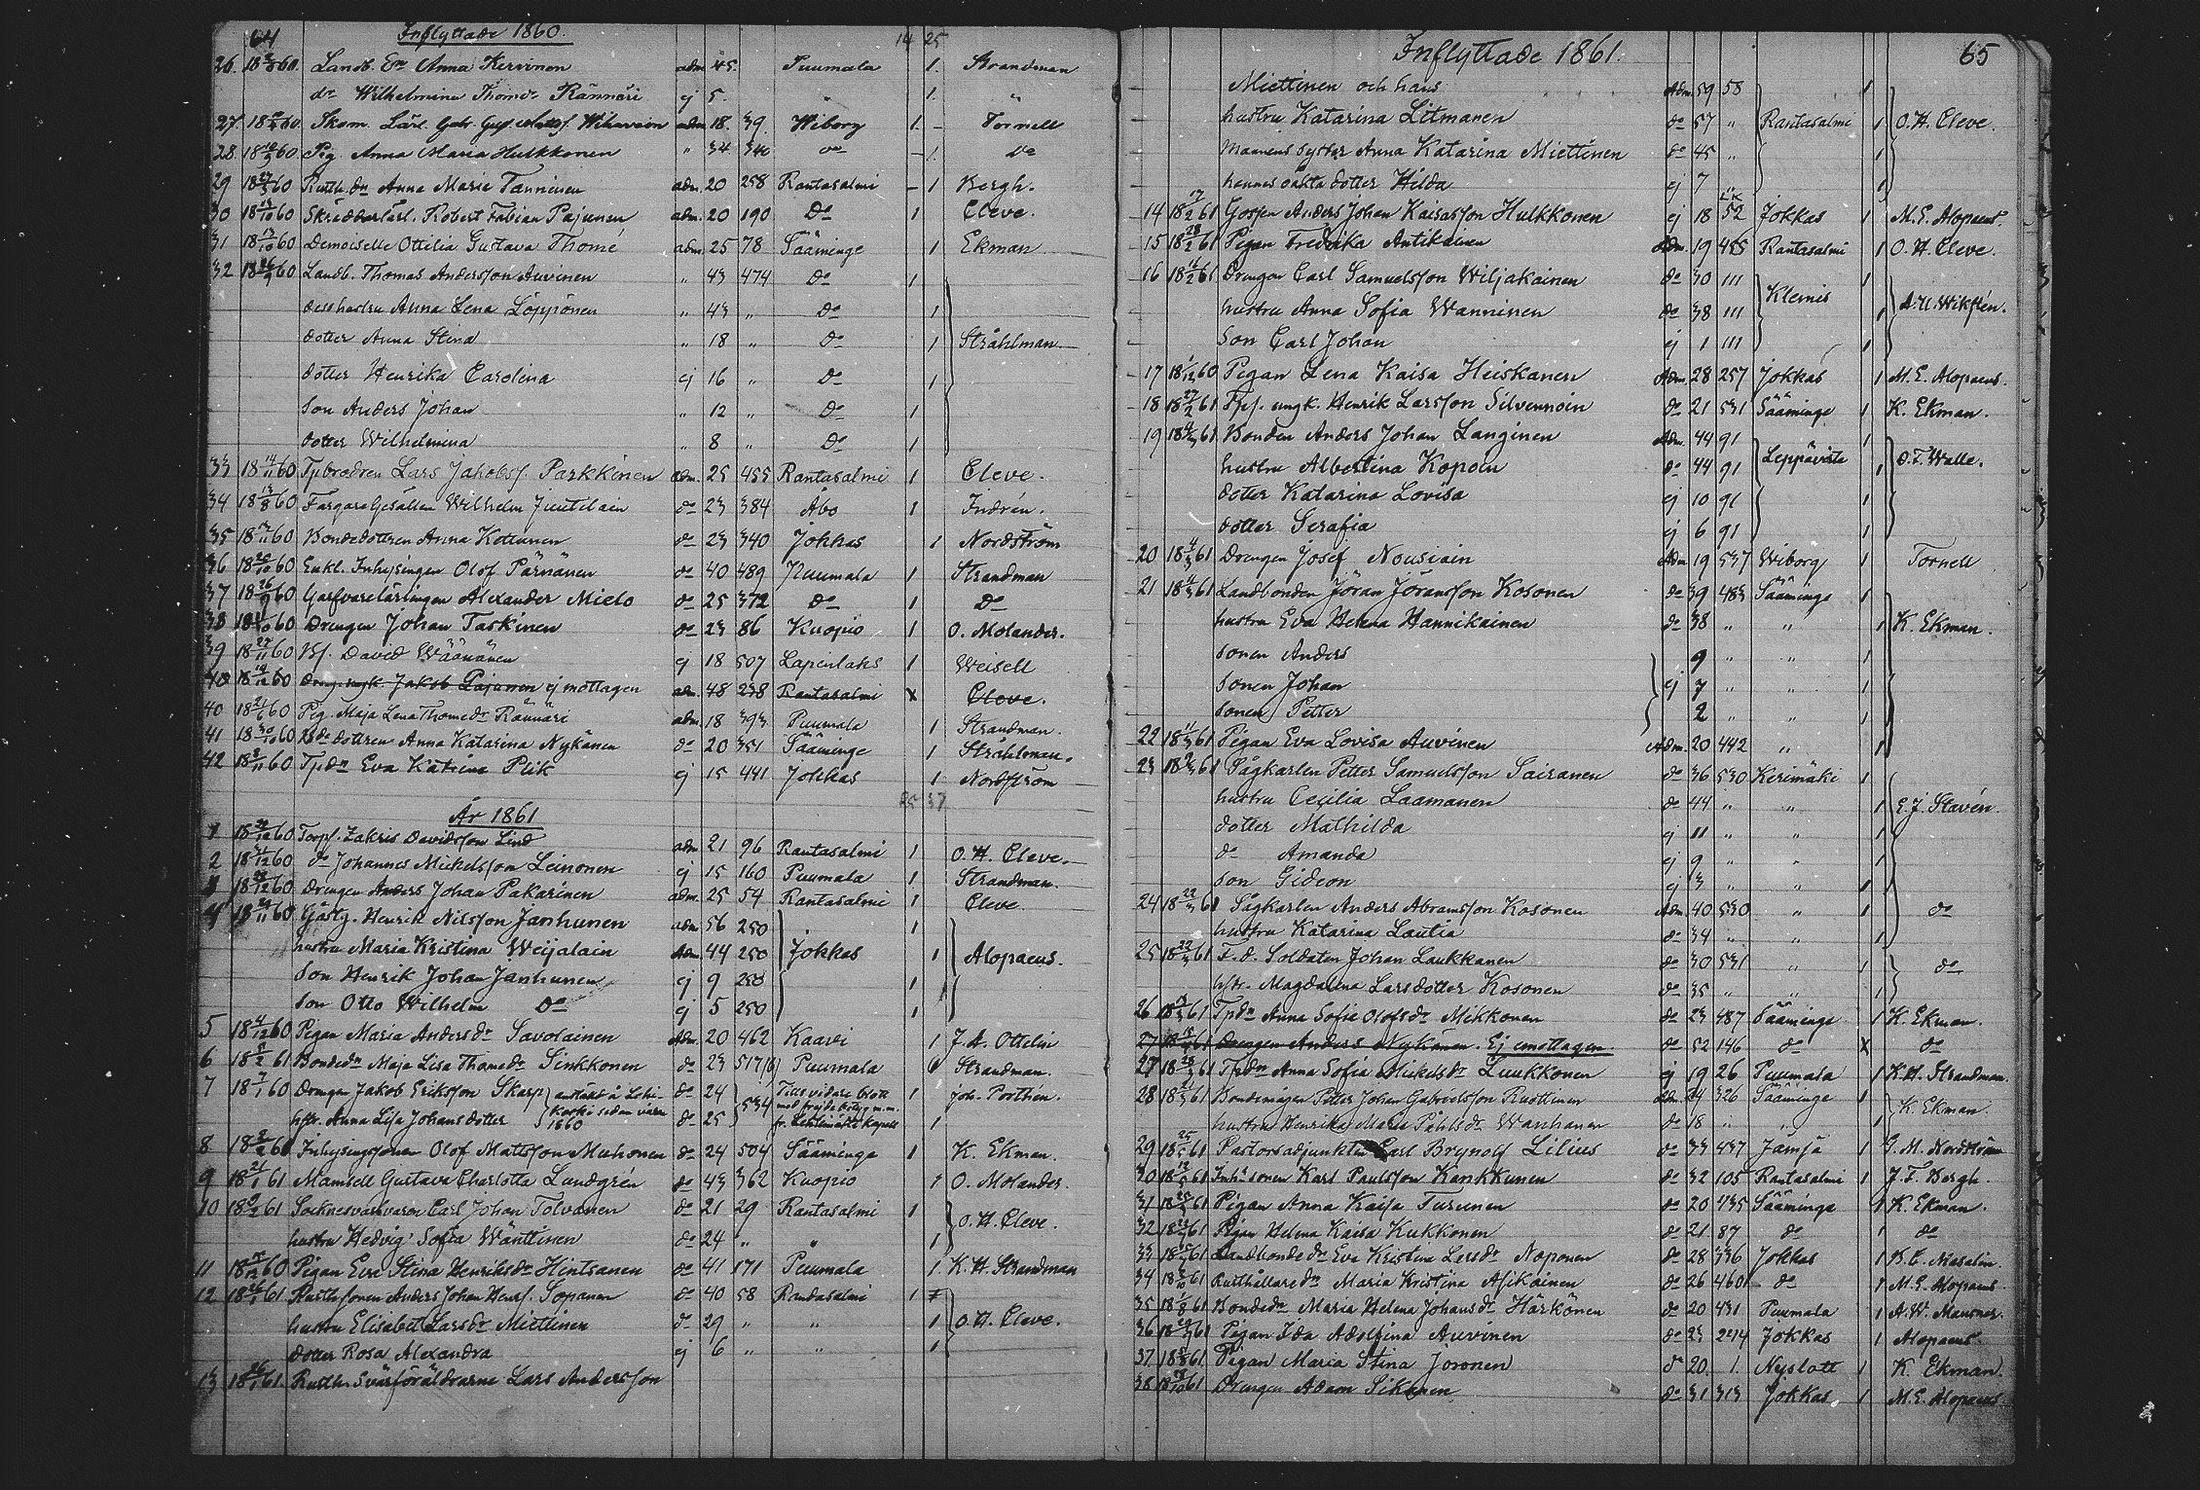 64 Inflyttade 1860.
14 25
26. 18 60. Landb. Anna Kervinen adm. 45. Puumala 1. Strandman
do Wilhelmina Thomdr Rännäri ej 5. " 1. "
27. 18 60 Skom. Lärl. Gabr. adm. 18. 39. Wiborg 1. – Tornell
28. 18 60 Pig. Anna Maria Hulkkonen " 34 340 do – 1. do
29 18 27/3 60 Rusth. dn Anna Maria Tanninen adm. 20 258 Rantasalmi – 1 Bergh.
30 18 60 Skräddarlärl. Robert Fabian Pajunen adm. 20 190 Do 1 Cleve.
31 18 13/10 60 Demoiselle Ottilia Gustava Thomé adm. 25 78 Sääminge 1 Ekman.
32 18 60 Landb. Thomas Andersson Auvinen " 43 474 Do 1
dess hustru Anna Lena Löppönen " 43 " Do 1
dotter Anna Stina " 18 " Do 1 Stråhlman
dotter Henrika Carolina ej 16 " Do 1
Son Anders Johan " 12 " Do 1
dotter Wilhelmina " 8 " Do 1
33 18 14/11 60 Lars Jakobsf. Parkkinen adm. 25 455 Rantasalmi 1 Cleve.
34 18 13/8 60 Färgare Gesällen Wilhelm Juutilain do 23 384 Åbo 1 Indrén.
35 18 60 Bondedottren Anna Kettunen do 23 340 Jokkas 1 Nordström
36 18 60 Enkl. Inhysingen Olof Pärnänen do 40 489 Puumala 1 Strandman
37 18 26/9 60 Garfvarelärlingen Alexander Mielo do 25 372 Do 1 Do
38 18 60 Drengen Johan Taskinen do 23 86 Kuopio 1 O. Molander.
39 18 27/11 60 David Wäänänen ej 18 507 Lapinlaks 1 Weisell
40 18 60 Jakob Pajunen ej mottagen adm. 48 238 Rantasalmi x Cleve.
40 18 60 Pig. Maja Lena Thomedr Rännäri adm. 18 393 Puumala 1 Strandman.
41 18 30/10 60 Bdedottren Anna Katarina Nykänen do 20 351 Sääminge 1 Stråhlman.
42 18 60 Eva Katrina Plik ej 15 441 Jokkas 1 Nordström
25 37
År 1861
1 18 60 Torpf. Zakris Davidsson Lind adm 21 96 Rantasalmi 1 O. H. Cleve.
2 18 60 do Johannes Mickelsson Leinonen ej 15 160 Puumala 1 Strandman.
3 18 60 Drengen Anders Johan Pakarinen adm. 25 54 Rantasalmi 1 Cleve
4 18 60 Gästg. Henrik Nilsson Janhunen adm 56 250 1
hustru Maria Kristina Weijalain Adm. 44 250 Jokkas 1 Alopaeus.
Son Henrik Johan Janhunen ej 9 250 1
Son Otto Wilhelm Do ej 5 250 1
5 18 4/12 60 Pigan Maria Andersdr Savolainen Adm. 20 462 Kaavi 1 J. A. Ottelin
6 18 61 Bondedn Maja Lisa Thomedr Sinkkonen do 23 517 Puumala Strandman.
7 18 60 Drengen Jakob Eriksson Skarp do 24 534 Tills vidare 1 Joh. Porthén.
hstr. Anna Lisa Johansdotter sedan våren 1860 do 25 1
8 18 60 Inhysingssonen Olof Mattsson Muhonen do 24 504 Sääminge 1 K. Ekman.
9 18 21/1 61 Mamsell Gustava Charlotta Lundgrén do 43 362 Kuopio 1 O. Molander.
10 18 61 Carl Johan Tolvanen do 21 29 Rantasalmi 1
hustru Hedvig Sofia Wänttinen do 24 " " 1 O. H. Cleve.
11 18 60 Pigan Eva Stina Henriksdr Hintsanen do 41 171 Puumala 1. K. H. Strandman
12 18 61 Rusth.sonen Anders Johan Henrs. Sopanen do 40 58 Randasalmi 1
hustru Elisabet Larsdr Miettinen do 29 " " 1 O. H. Cleve.
dotter Rosa Alexandra ej 6 " " 1
13 18 61. Rusth. Svärföräldrarne Lars Andersson
Inflyttade 1861. 65
Miettinen och hans Adm. 59 58 1
hustru Katarina Litmanen do 57 " Rantasalmi 1 O. H. Cleve.
mannens syster Anna Katarina Miettinen do 45 " 1
hennes oäkta dotter Hilda ej 7 1
14 18 17/2 61 Gossen Anders Johan Kaisasson Hulkkonen ej 18 52 Jokkas 1 M. E. Alopaeus.
15 18 28/2 61 Pigan Fredrika Antikainen Adm. 19 485 Rantasalmi 1 O. H. Cleve.
16 18 61 Drengen Carl Samuelsson Wiljakainen do 30 111 1
hustru Anna Sofia Wanninen do 38 111 Klemis 1
Son Carl Johan ej 1 111 1
17 18 60 Pigan Lena Kaisa Heiskanen Adm. 28 257 Jokkas 1 M. E. Alopaeus.
18 18 27/2 61 ungk. Henrik Larsson Silvennoin do 21 531 Sääminge 1 K. Ekman.
19 18 61 Bonden Anders Johan Langinen Adm. 44 91 1
hustru Albertina Kopoin do 44 91 Leppävirta 1
dotter Katarina Lovisa ej 10 91 1
dotter Serafia ej 6 91 1
20 18 4/3 61 Drengen Josef Nousiain Adm. 19 537 Wiborg 1 Tornell
21 18 4/3 61 Landbonden Jöran Jöransson Kosonen do 39 483 Sääminge 1
hustru Eva Helena Hannikainen do 38 " " 1 K. Ekman.
sonen Anders 9 " " 1
sonen Johan ej 7 " " 1
sonen Petter 2 " " 1
22 18 11/3 61 Pigan Eva Lovisa Auvinen Adm. 20 442 " 1
23 18 61 Sågkarlen Petter Samuelsson Sairanen do 36 530 Kerimäki 1
hustru Cecilia Laamanen do 44 " " 1 E. J. Stavén.
dotter Mathilda ej 11 " " 1
do Amanda ej 9 " " 1
son Gideon ej 3 " " 1
24 18 22/3 61 Sågkarlen Anders Abramsson Kosonen Adm. 40 530 " 1 do
hustru Katarina Lautia do 34 " " 1
25 18 22/3 61 F.d. Soldaten Johan Laukkanen do 30 531 " 1 do
hstr. Magdalena Larsdotter Kosonen do 35 " " 1
26 18 61 Anna Sofia Olofsdr Mikkonen do 23 487 Sääminge 1 K. Ekman.
27 18 61 Drengen Anders Nykänen. Ej emottagen do 52 146 do x do
27 18 61 Anna Sofia Mickelsdr Luukkonen ej 19 26 Puumala 1 K. H. Strandman.
28 18 61 Bondemågen Petter Johan Gabrielsson Ruottinen adm. 24 326 Sääminge 1
hustru Henrika Maria Påhlsdr Wanhanen do 18 " " 1 K. Ekman.
29 18 61 Pastorsadjunkten Carl Brynolf Lilius do 33 437 Jämsä 1 G. M. Nordström
30 18 61 Inh.sonen Karl Paulsson Kankkunen do 32 105 Rantasalmi 1 J. F. Bergh.
31 18 61 Pigan Anna Kaisa Turunen do 20 435 Sääminge 1 K. Ekman.
32 18 61 Pigan Helena Kaisa Kukkonen do 21 87 do 1 do
33 18 61 Landbondedn Eva Kristina Larsdr Noponen do 28 336 Jokkas 1
34 18 61 Rusthållaredn Maria Kristina Asikainen do 26 460 do 1 M. E. Alopaeus
35 18 61 Bondedn Maria Helena Johansdr Härkönen do 20 431 Puumala 1
36 18 61 Pigan Ida Adolfina Auvinen do 23 Jokkas 1 Alopaeus.
37 18 61 Pigan Maria Stina Joronen do 20. 1. Nyslott 1 K. Ekman.
38 18 61 Drengen Adam Sikanen do 31 313 Jokkas 1 M. E. Alopaeus